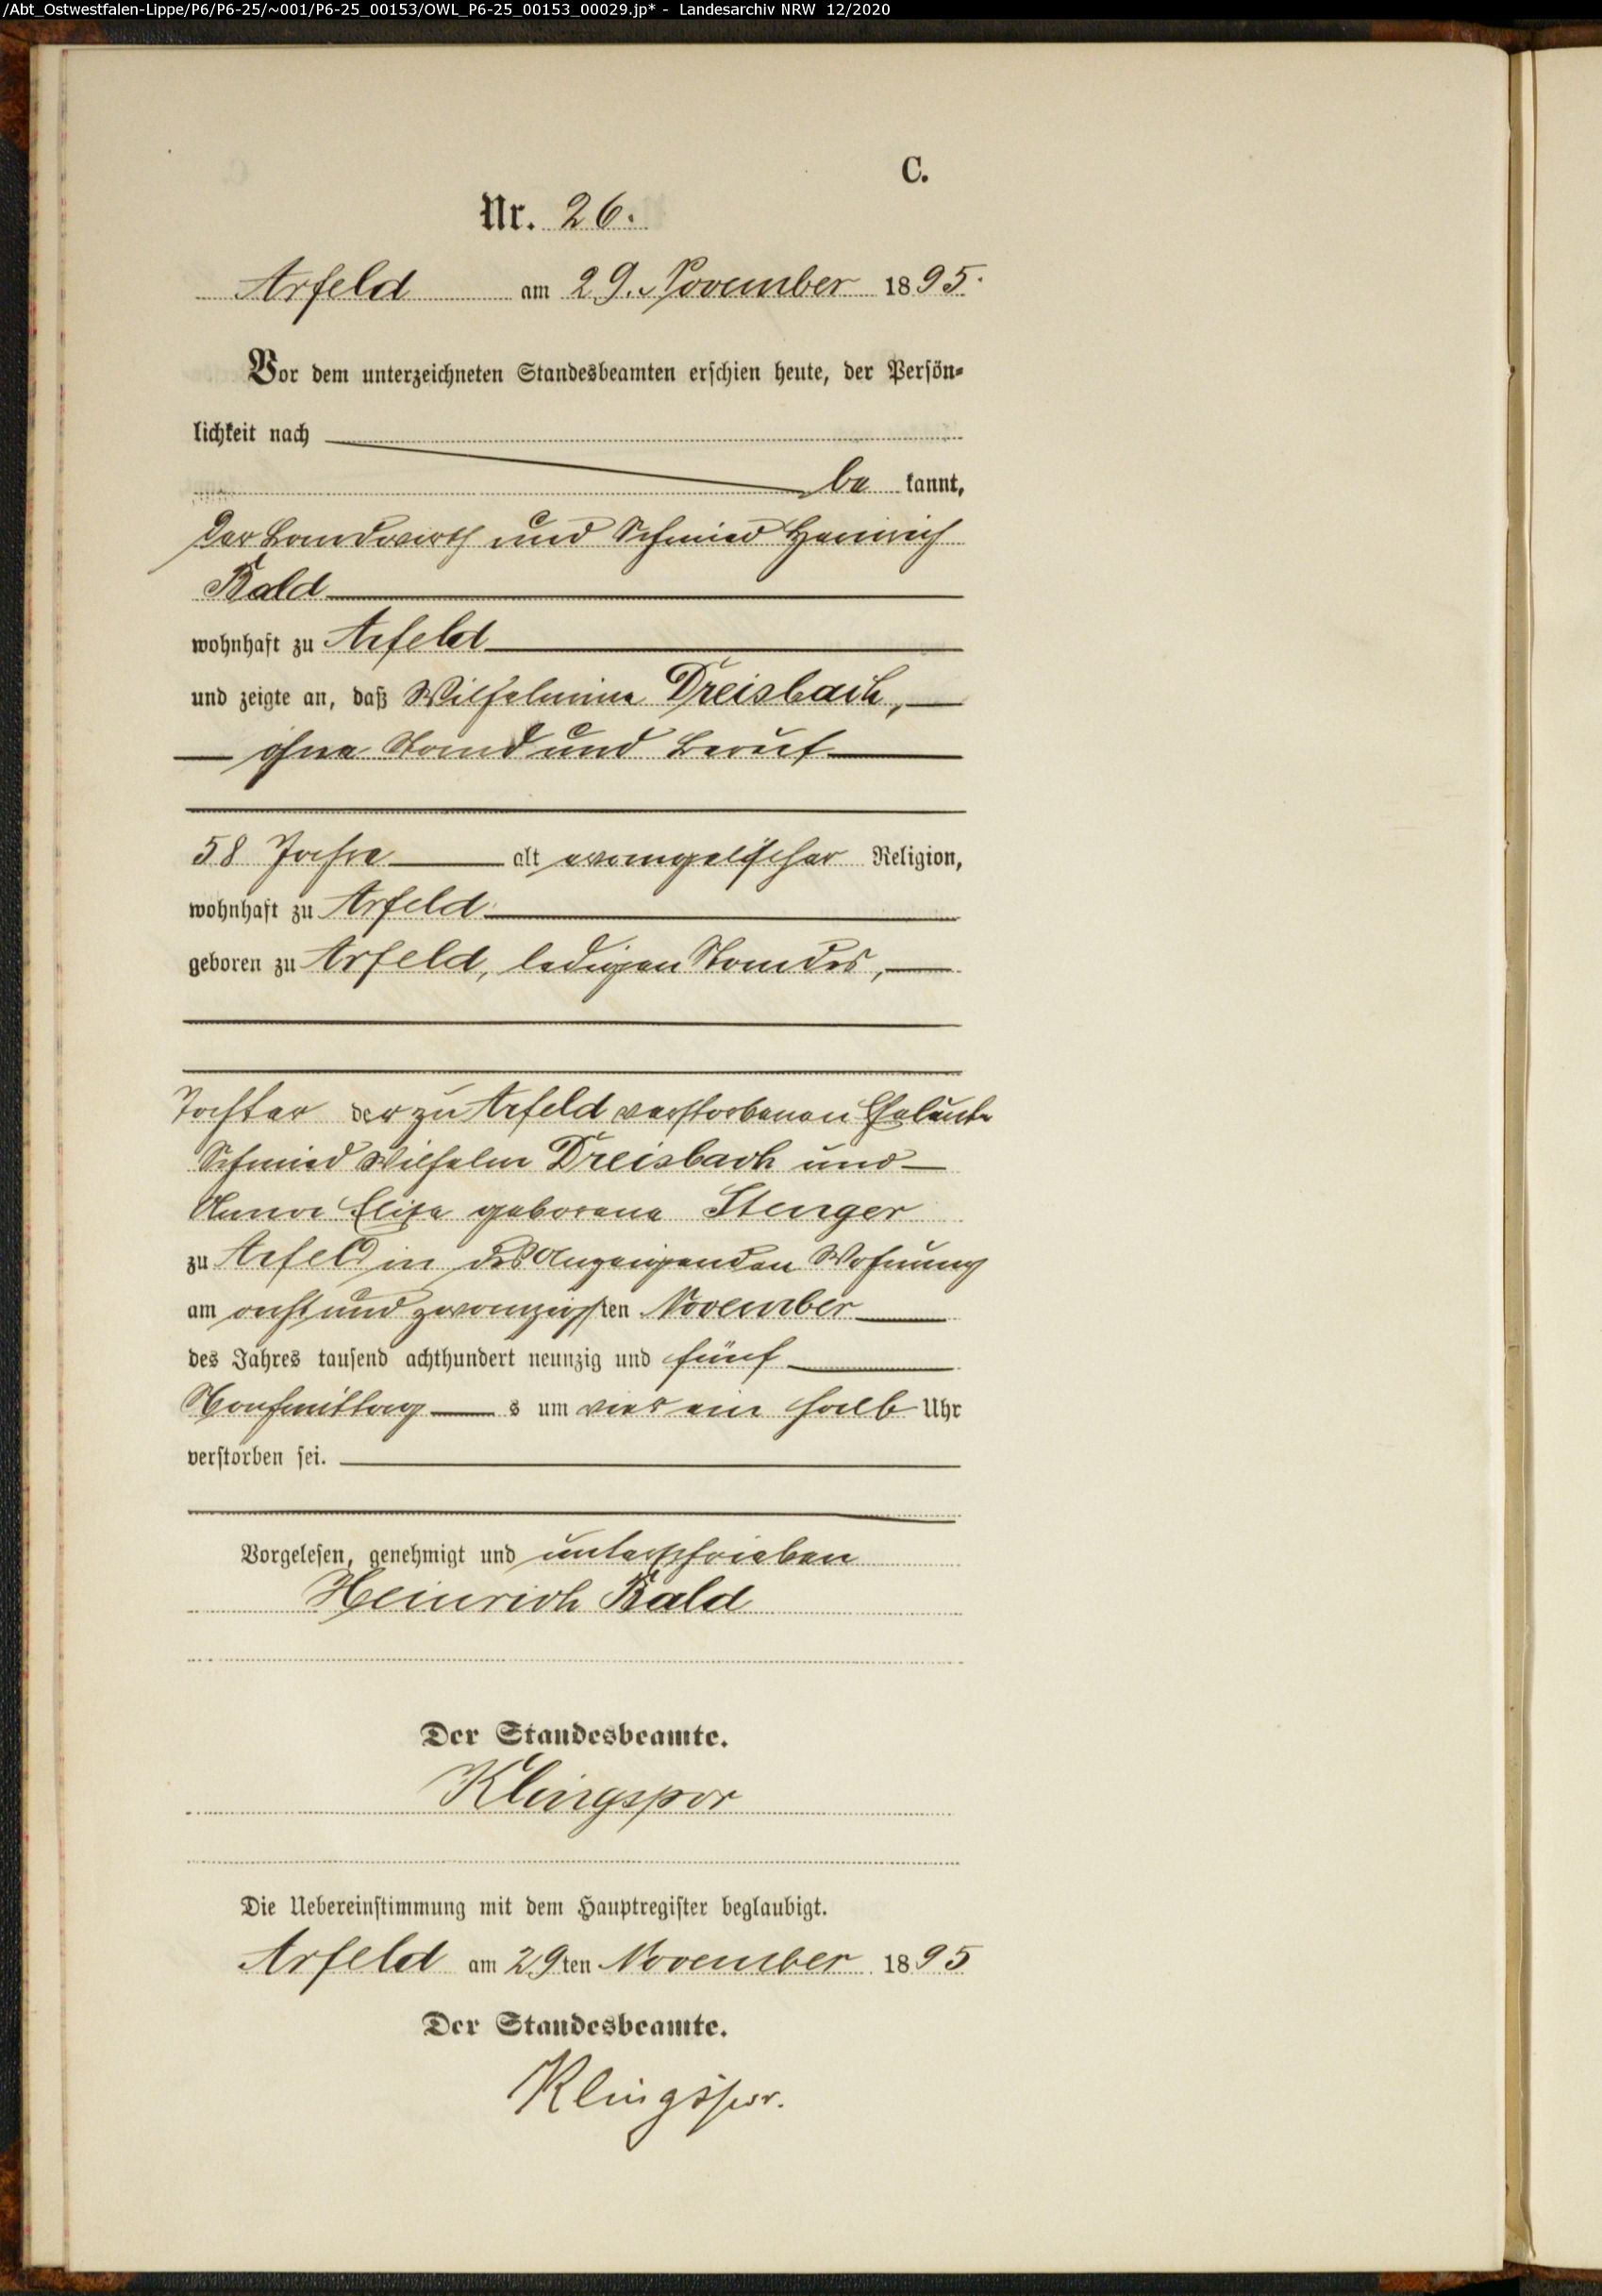 /Abt_Ostwestfalen-Lippe/P6/P6-25/~001/P6-25_00153/OWL_P6-25_00153_00029.jp* - Landesarchiv NRW 12/2020
C.
Nr. 26.
Arfeld am 29. November 1895.
Vor dem unterzeichneten Standesbeamten erschien heute, der Persön-
lichkeit nach
be kannt,
der Landwirth und Schmied Heinrich
Bald
wohnhaft zu Arfeld
und zeigte an, daß Wilhelmine Dreisbach,
ohne Stand und Beruf
58 Jahre alt evangelischer Religion,
wohnhaft zu Arfeld
geboren zu Arfeld, ledigen Standes,
Tochter der zu Arfeld verstorbenen Eheleute
Schmied Wilhelm Dreisbach und
Anna Elise geborene Stenger
zu Arfeld in des Anzeigenden Wohnung
am acht und zwanzigsten November
des Jahres tausend achthundert neunzig und fünf
Nachmittag s um vier ein halb Uhr
verstorben sei.
Vorgelesen, genehmigt und unterschrieben
Heinrich Bald
Der Standesbeamte.
Klingspor
Die Uebereinstimmung mit dem Hauptregister beglaubigt.
Arfeld am 29ten November 1895
Der Standesbeamte.
Klingspor.